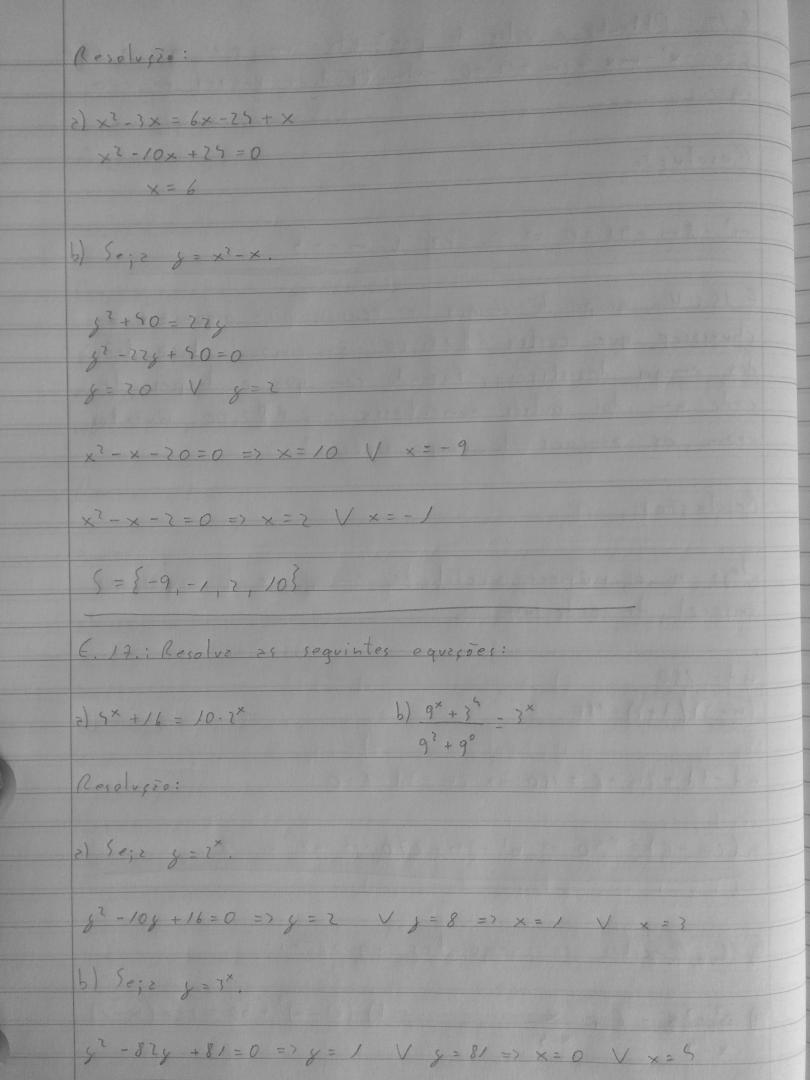 Resolução:
a) x² - 3x = 6x - 24 + x
x² - 10x + 24 = 0
x = 6
b) Seja y = x² - x.
y² + 40 = 22y
y² - 22y + 40 = 0
y = 20 V y = 2
x² - x - 20 = 0 => x = 10 V x = -9
x² - x - 2 = 0 => x = 2 V x = -1
S = {-9, -1, 2, 10}
E. 17.: Resolva as seguintes equações:
a) 4ˣ + 16 = 10 · 2ˣ b) (9ˣ + 3⁴)/(9² + 9⁰) = 3ˣ
Resolução:
a) Seja y = 2ˣ.
y² - 10y + 16 = 0 => y = 2 V y = 8 => x = 1 V x = 3
b) Seja y = 3ˣ.
y² - 82y + 81 = 0 => y = 1 V y = 81 => x = 0 V x = 4